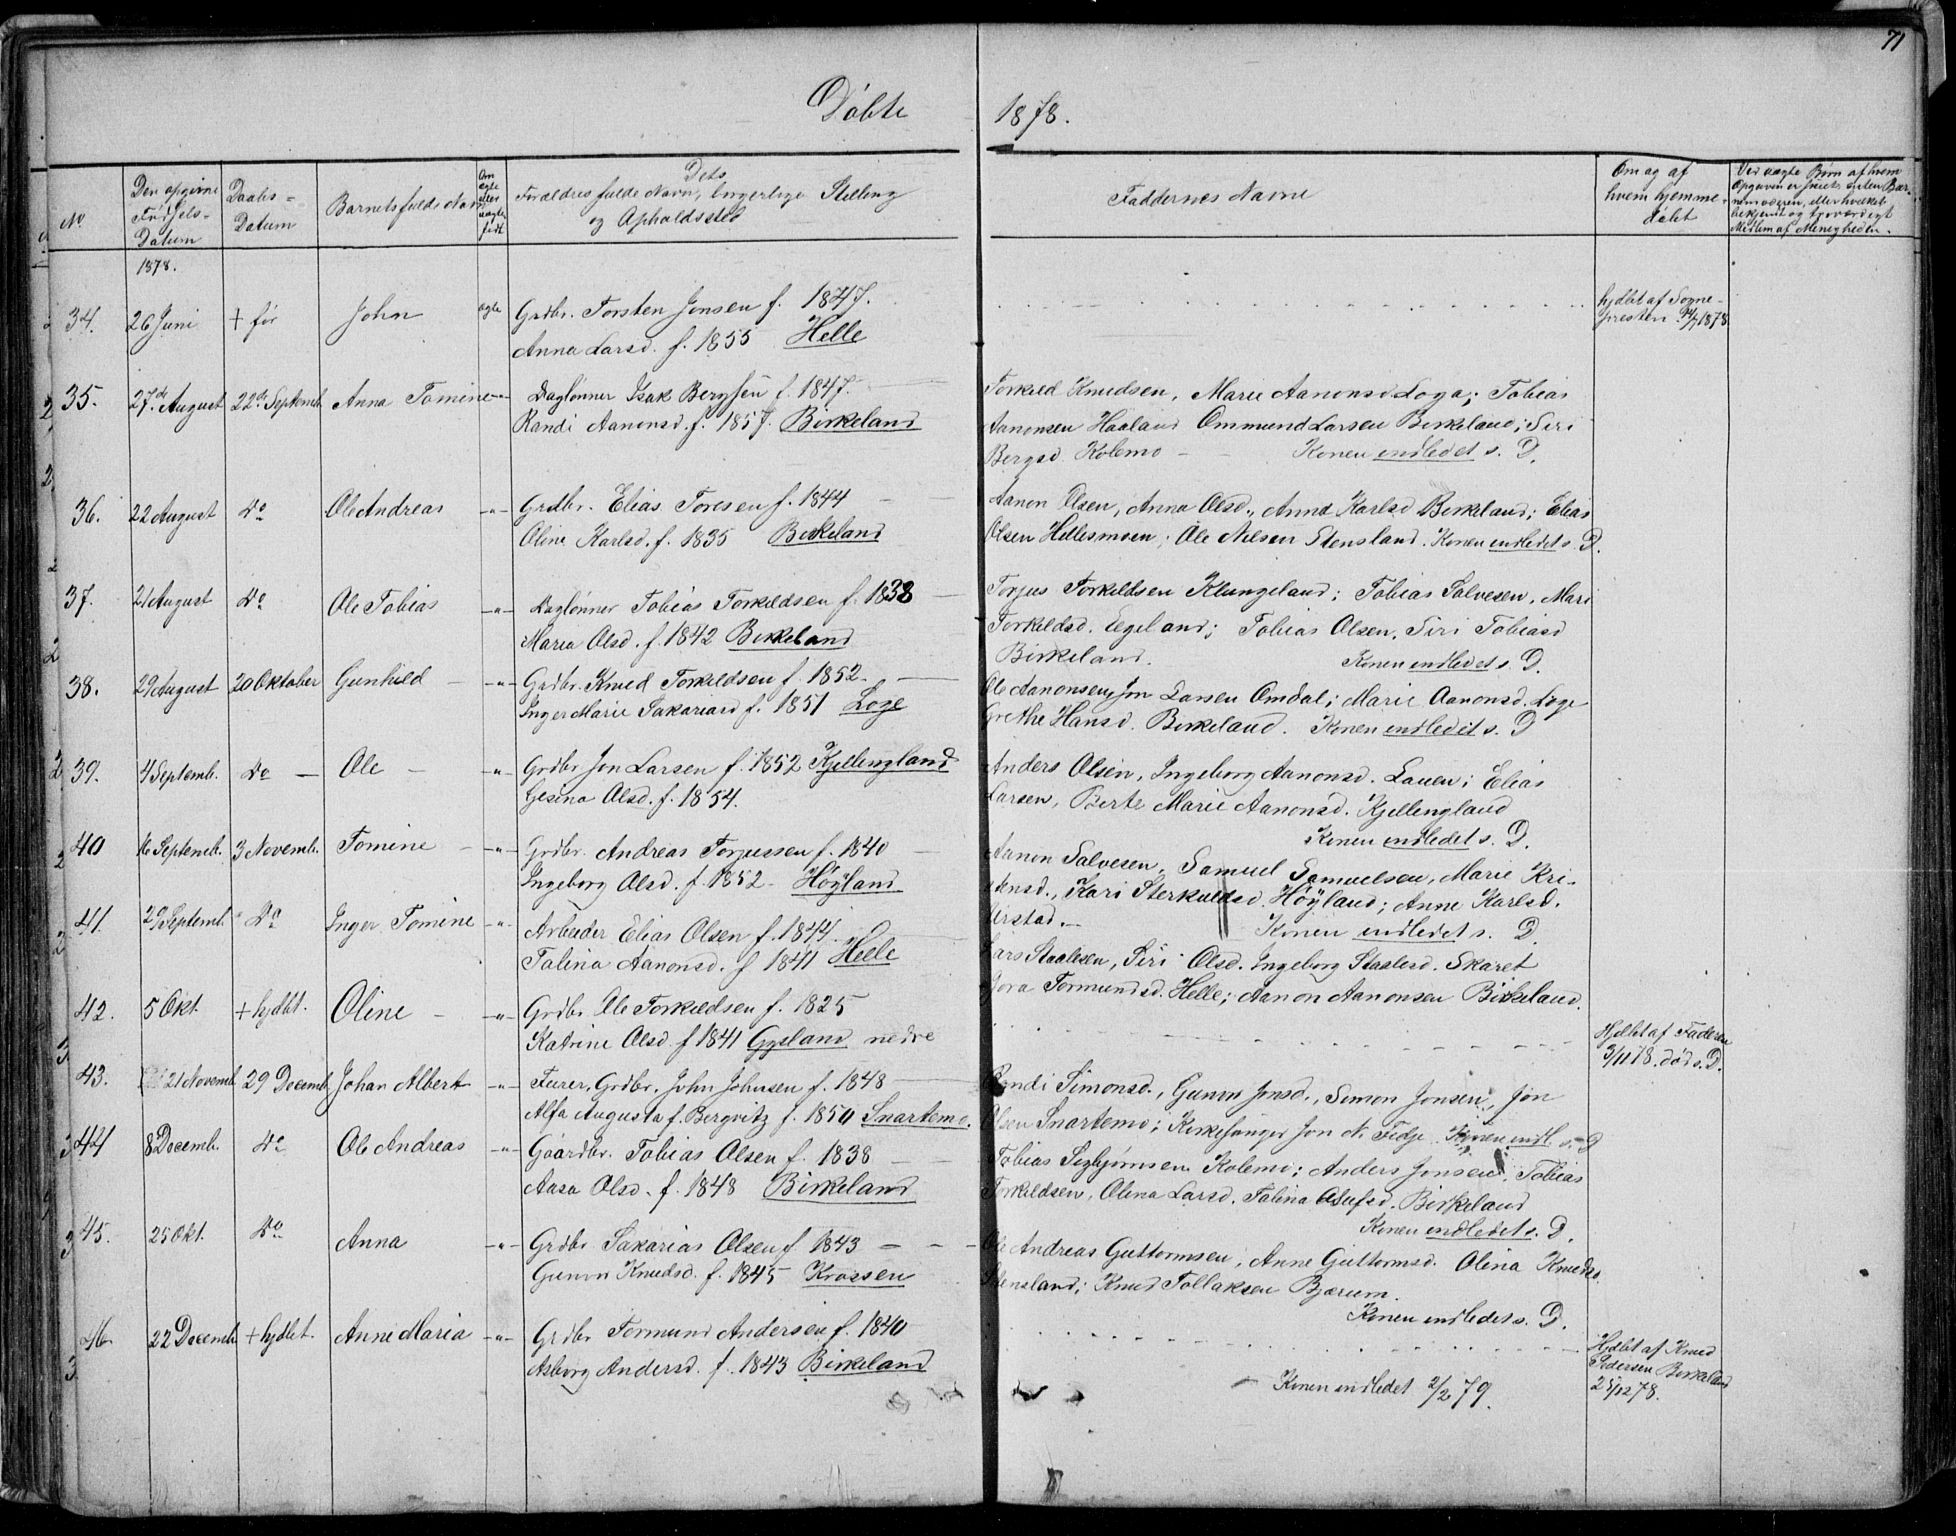 71
Döbte 1878.
No.
Den opgivne Födsels-Datum
Daabs-Datum
Barnets fulde Navn
Om ægte eller uægte født
Dets Forældres fulde Navn, borgerlige Stilling og Opholdssted
Faddernes Navne
Om og af hvem hjemmedøbt
Ved uægte Børn af hvem Opgaven er skeet, enten Barnemoderen, eller hvilket bekjent og troværdigt Medlem af Menigheden.
1878.
34. 26 Juni + før John ægte Grdbr. Torsten Jonsen f. 1847.
Anna Larsd. f. 1855 Helle
hjdbt af Sognepresten 1878.
35. 27de August 22de Septemb. Anna Tomine -"- Daglönner Isak Bergsen f. 1847.
Randi Aanonsd. f. 1857. Birkeland
Torkild Knudsen, Marie Aanonsd Loga; Tobias
Aanonsen Haaland Ommund Larsen Birkeland; Siri
Bergsd. Kolemo - - Konen indledet s. D.
36. 22 August Do Ole Andreas -"- Grdbr. Elias Toresen f. 1844
Oline Karlsd. f. 1835 Birkeland
Aanon Olsen, Anna Olsd., Anna Karlsd Birkeland; Elias
Olsen Hellesmoen; Ole Nilsen Stensland. Konen indledet s. D.
37. 21 August Do Ole Tobias -"- Daglönner Tobias Torkildsen f. 1838
Maria Olsd. f. 1842 Birkeland
Torjus Torkildsen Klungeland; Tobias Salvesen, Mari
Torkildsd. Egeland; Tobias Olsen, Siri Tobiasd
Birkeland. Konen indledet s. D.
38. 29 August 20 Oktober Gunhild -"- Grdbr. Knud Torkildsen f. 1852.
Inger Marie Sakariasd f. 1851 Loge
Ole Aanonsen, Jon Larsen Omdal; Marie Aanonsd. Loge
Grethe Hansd. Birkeland. Konen indledet s. D
39. 4 Septemb. Do Ole -"- Grdbr Jon Larsen f. 1852 Kjellengland
Gesina Olsd. f. 1854.
Anders Olsen, Ingeborg Aanonsd. Lauen; Elias
Larsen, Berte Marie Aanonsd. Kjellengland
Konen indledet s. D.
40 16 Septemb. 3 Novemb. Tomine -"- Grdbr. Andreas Torjussen f. 1840
Ingeborg Olsd. f. 1852 Höyland
Aanon Salvesen, Samuel Samuelsen, Marie Kri-
stensd., Kari Sterkuldsd. Höyland; Anne Karlsd.
Urstad. Konen indledet s. D.
41. 29 Septemb. Do Inger Tomine -"- Arbeider Elias Olsen f. 1844.
Talina Aanonsd. f 1841 Helle
Lars Staalesen, Siri Olsd. Ingeborg Staalesd. Skaret
Tormundsd. Helle; Aanon Aanonsen Birkeland.
42. 5 Okt. + hjdbt. Oline -"- Grdbr Ole Torkildsen f. 1825
Katrine Olsd. f 1841 Gysland nedre
Hjdbt af Faderen
3/11 78. död s. D.
43. 21 Novemb. 29 Decemb. Johan Albert -"- Furer, Grdbr. John Johnsen f. 1848
Alfa Augusta f. Bergvitz f. 1850 Snartemo.
Randi Simonsd., Gunvor Jonsd., Simon Jonsen, Jon
Olsen Snartemo; Kirkesanger Jon N. Fidje. Konen indl. s. D
44 8 Decemb. Do Ole Andreas -"- Gaardbr. Tobias Olsen f. 1838
Aasa Olsd. f. 1848 Birkeland
Tobias Sigbjørnsen Kolemo; Anders Jonsen, Tobias
Torkildsen, Olena Larsd. Talina Birkeland
Konen indledet s. D.
45. 25 Okt. Do Anna -"- Grdbr Sakarias Olsen f 1843
Gunvor Knudsd. f. 1845 Krossen
Ole Andreas Guttormsen, Anne Guttormsd. Olina Knudsd.
Stensland; Knud Tollaksen Bjærum.
Konen indledet s. D.
46. 22 Decemb. + hjdbt. Anne Maria -"- Grdbr Tormund Andersen f. 1840
Asborg Andersd. f. 1843 Birkeland
Konen indledet 2/2 79.
Hjdbt af Knud
Pedersen Birkeland
25/12 78.